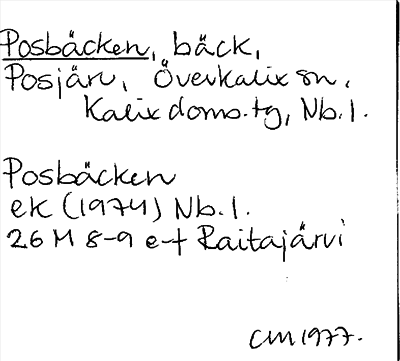 Posbäcken, bäck,
Posjärv, Överkalix sn,
Kalix doms.tg, Nb.l.
Posbäcken
ek (1974) Nb.l.
26 M 8-9 e-f Raitajärvi
CM 1977.